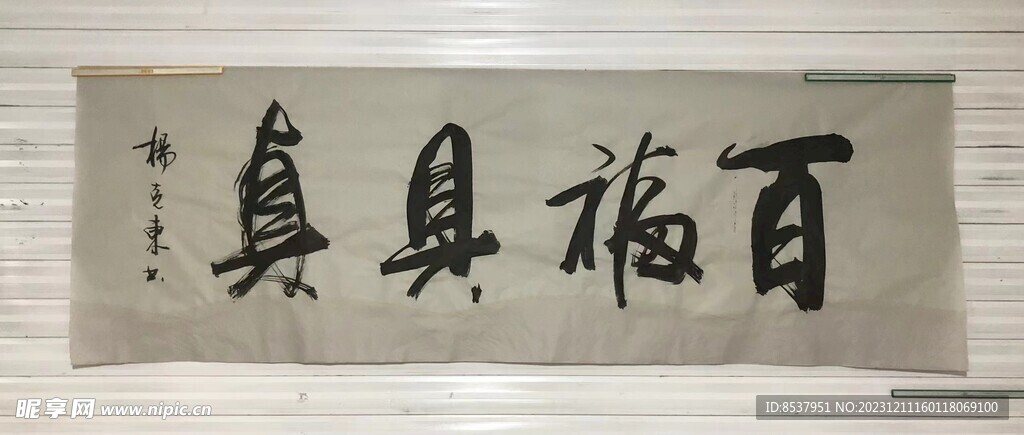 百福具真
楊克東书
昵享网 www.nipic.cn
ID:8537951 NO:20231211160118069100